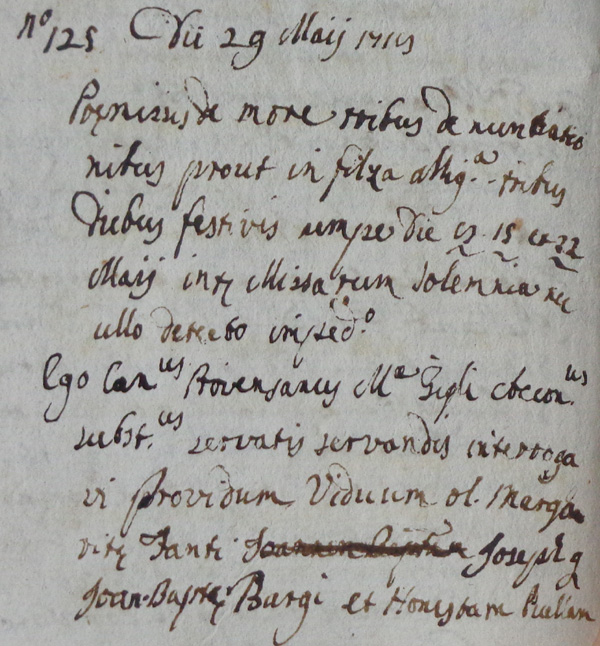 nº 125 Die 29 Maij
Pręmissis de more tribus denuntiatio
nibus prout in filza allig.ª tribus
diebus festivis nempe die 15 et 22
Maij intr Missarum solemnia nu
ullo detecto imped.º
Ego Can.cus Provensanus M.ª Gigli
subst.us servatis servandis interroga
vi providum Viduum ol. Marga
ritę Santi Joseph q
Joan. Baptę Burgi et Honestam Puellam